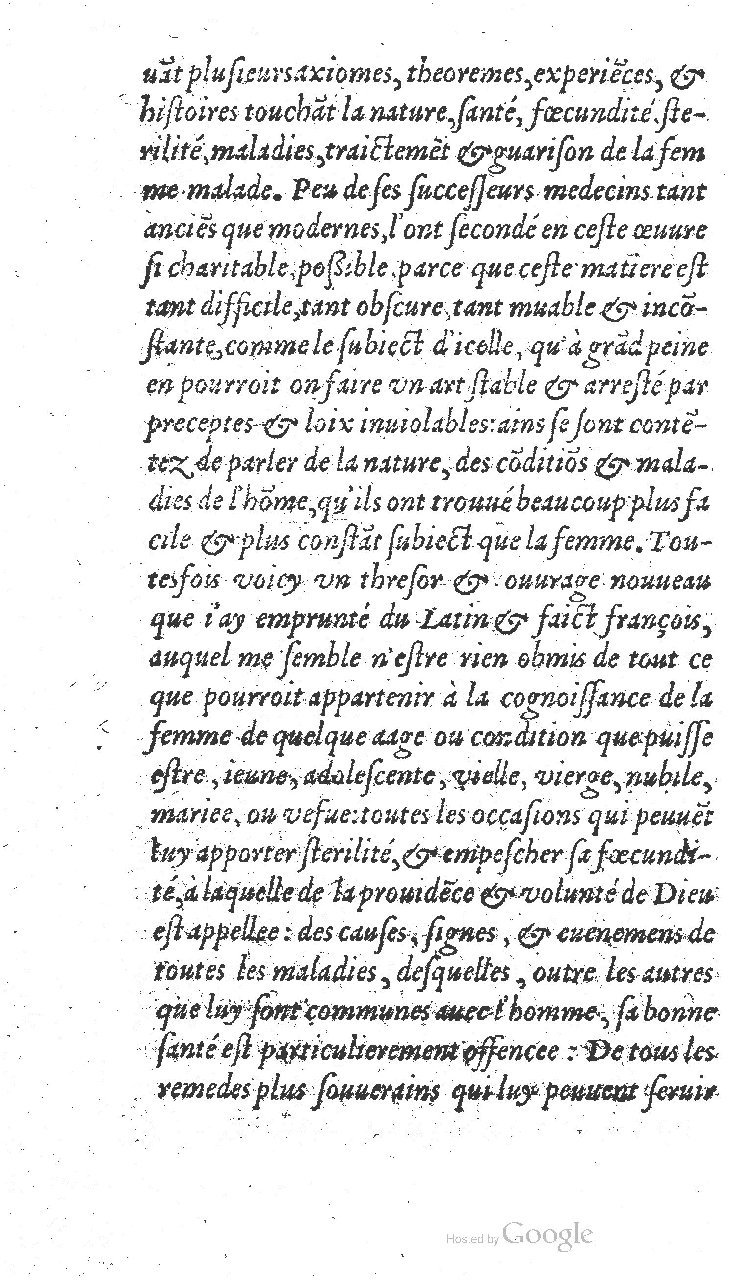 uāt plusieurs axiomes, theoremes, experiēces, &
histoires touchāt la nature, santé, fœcundité, ste-
rilité, maladies, traictemēt & guarison de la fem
me malade. Peu de ses successeurs medecins tant
anciēs que modernes, l'ont secondé en ceste œuure
si charitable, possible, parce que ceste matiere est
tant difficile, tant obscure, tant muable & incō-
stante, comme le subiect d'icelle, qu'à grād peine
en pourroit on faire vn art stable & arresté par
preceptes & loix inuiolables: ains se sont contē-
tez de parler de la nature, des cōditiōs & mala-
dies de l'hōme, qu'ils ont trouué beaucoup plus fa
cile & plus constāt subiect que la femme. Tou-
tesfois voicy vn thresor & ouurage nouueau
que i'ay emprunté du Latin & faict françois,
auquel me semble n'estre rien obmis de tout ce
que pourroit appartenir à la cognoissance de la
femme de quelque aage ou condition que puisse
estre, ieune, adolescente, vielle, vierge, nubile,
mariee, ou vefue: toutes les occasions qui peuuēt
luy apporter sterilité, & empescher sa fœcundi-
té, à laquelle de la prouidēce & volunté de Dieu
est appellee: des causes, signes, & euenemens de
toutes les maladies, desquelles, outre les autres
que luy sont communes auec l'homme, sa bonne
santé est particulierement offencee: De tous les
remedes plus souuerains qui luy peuuent seruir
Hosted by Google